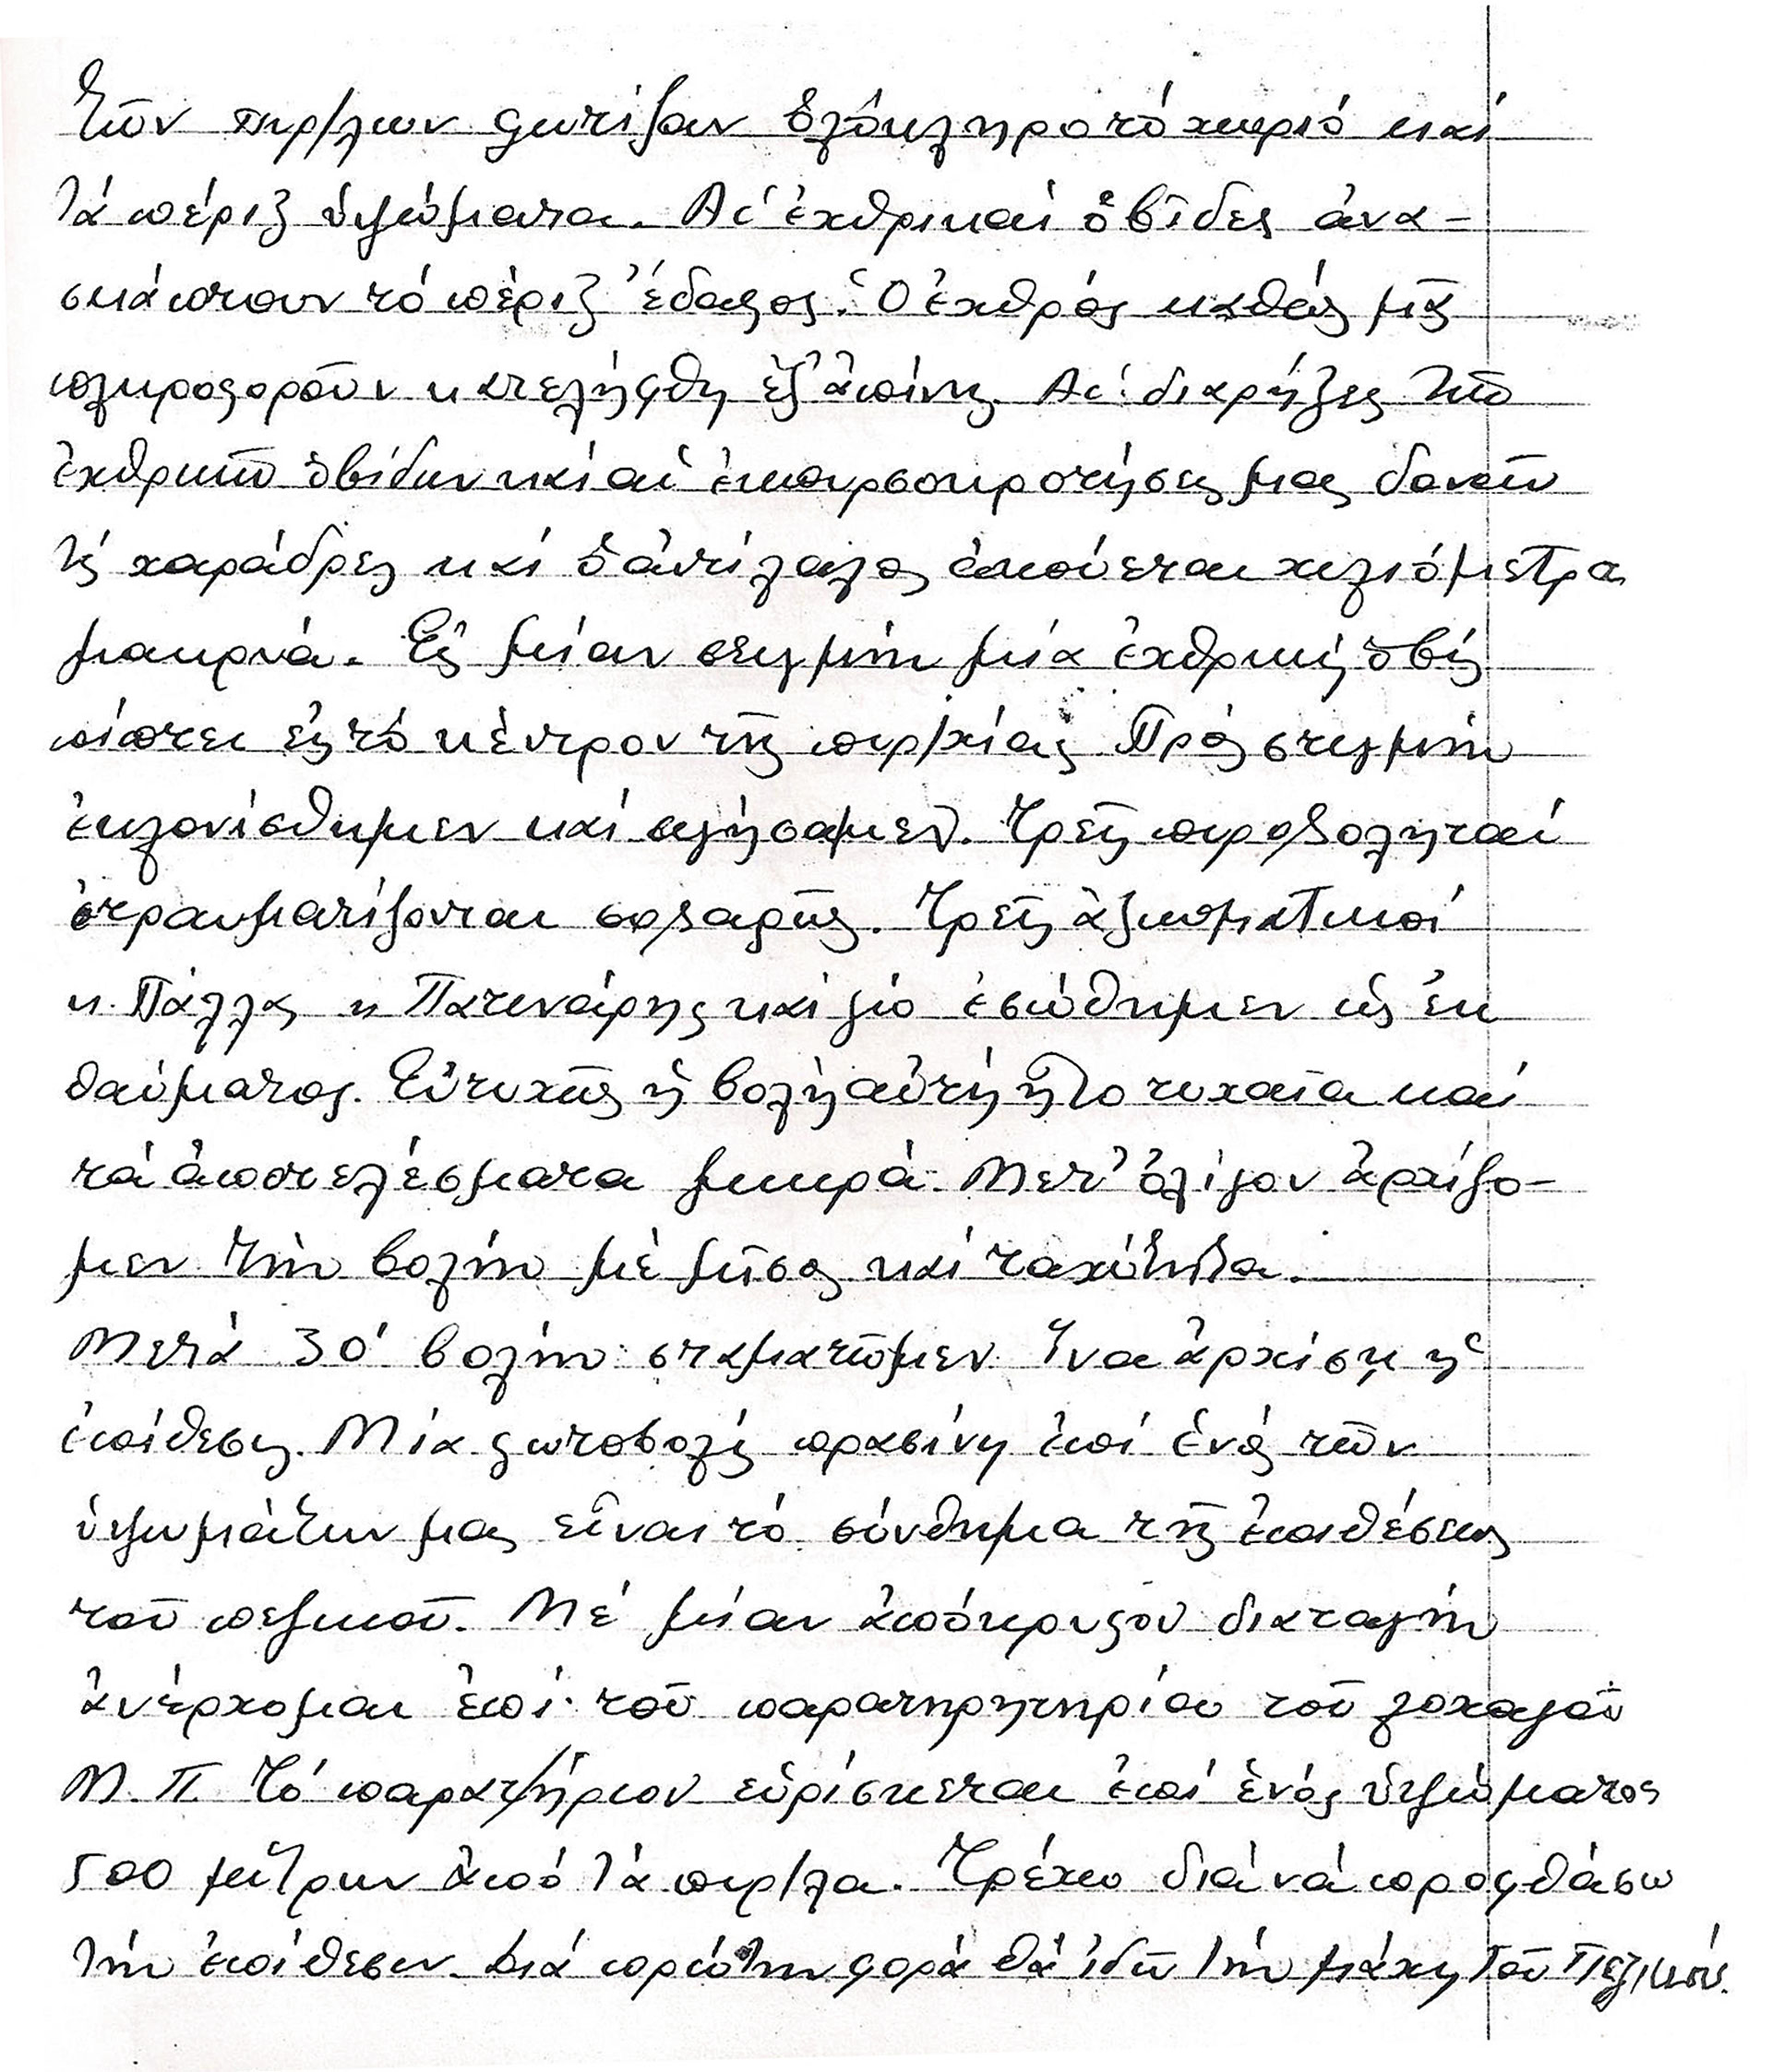 τῶν πυρ/λων φωτίζουν ὁλόκληρο τό χωριό καί
τά πέριξ ὑψώματα. Αἱ ἐχθρικαί ὀβῖδες ἀνα-
σκάπτουν τό πέριξ ἔδαφος. Ὁ ἐχθρός καθώς μᾶς
πληροφοροῦν κατελήφθη ἐξ ἀπίνης. Αἱ διαρήξεις τῶν
ἐχθρικῶν ὀβίδων καί αἱ ἐκπυρσοκροτήσεις μας δονοῦν
τίς χαράδρες καί ὁ ἀντίλαλος ἀκούεται χιλιόμετρα
μακρυά. Εἰς μίαν στιγμήν μία ἐχθρική ὀβίς
πίπτει εἰς τό κέντρον τῆς πυρ/χίας. Πρός στιγμήν
ἐκλονίσθημεν καί σιγήσαμεν. Τρεῖς πυροβοληταί
ἐτραυματίζονται σοβαρῶς. Τρεῖς ἀξιωματικοί
κ. Πάλλας κ Πατεναίρης καί γώ ἐσώθημεν ὡς ἐκ
θαύματος. Εὐτυχῶς ἡ βολή αὐτή ἦτο τυχαῖα καί
τά ἀποτελέσματα μικρά. Μετ' ὀλίγον ἀρχίζο-
μεν τήν βολήν μέ μῖσος καί ταχύτητα.
Μετά 30' βολήν σταματῶμεν ἵνα ἀρχίσῃ ἡ
ἐπίθεσις. Μία φωτοβολίς πρασίνη ἐπί ἑνός τῶν
ὑψωμάτων μας εἶναι τό σύνθημα τῆς ἐπιθέσεως
τοῦ πεζικοῦ. Μέ μίαν ἀπόκρυφον διαταγήν
ἀνέρχομαι ἐπί τοῦ παρατηρητηρίου τοῦ λοχαγοῦ
Μ. Π. Τό παρατ/τήριον εὑρίσκεται ἐπί ἑνός ὑψώματος
500 μέτρων ἀπό τά πυρ/λα. Τρέχω διά νά προφθάσω
τήν ἐπίθεσιν. Διά πρώτην φορά θά ἰδῶ τήν μάχη τοῦ Πεζικοῦ.